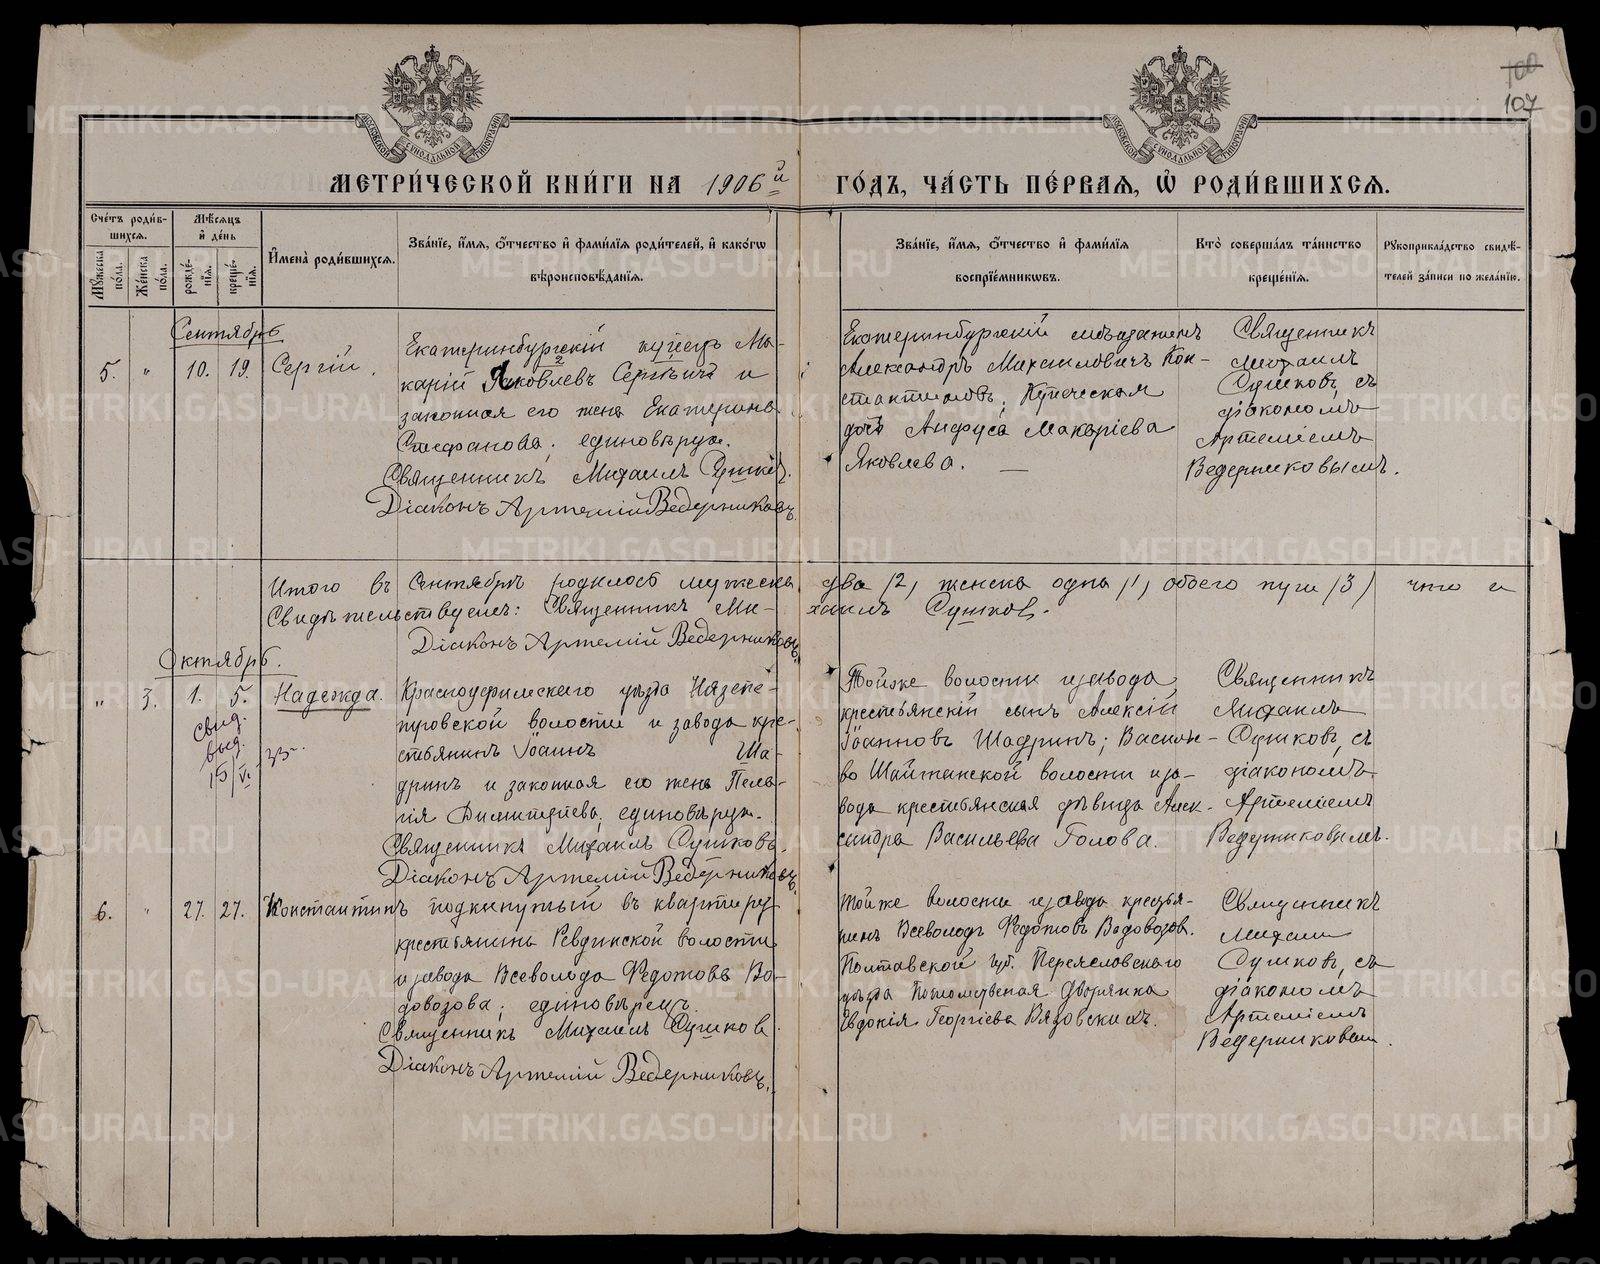 100
107
МОСКОВСКОЙ СѴНОДАЛЬНОЙ ТИПОГРАФІИ
МОСКОВСКОЙ СѴНОДАЛЬНОЙ ТИПОГРАФІИ
МЕТРИ́ЧЕСКОЙ КНИ́ГИ НА 1906й ГО́ДЪ, ЧА́СТЬ ПЕ́РВАЯ, Ѡ҆ РОДИ́ВШИХСЯ.
Сче́тъ роди́в-
шихся.
Мѣ́сяцъ
и҆ де́нь
Мꙋ́жеска по́ла.
Же́нска по́ла.
рожде́-
нїя.
креще́-
нїя.
И҆мена̀ роди́вшихся.
Зва́нїе, и҆́мя, ѻ҆́тчество и҆ фами́лїя роди́телей, и҆ како́гѡ
вѣроисповѣ́данїя.
Зва́нїе, и҆́мя, ѻ҆́тчество и҆ фами́лїя
воспрїе́мникѡвъ.
Кто̀ соверша́лъ та́инство
креще́нїя.
Рꙋкоприкла́дство свидѣ́-
телей за́писи по жела́нїю.
Сентябрь
5. " 10. 19. Сергій.
Екатеринбургскій купецъ Ма-
карій Яковлевъ Сергѣичъ и
законная его жена Екатерина
Стефанова, единовѣрцы.
Священникъ Михаилъ Сушковъ.
Діаконъ Артемій Ведерниковъ.
Екатеринбургскій мѣщанинъ
Александръ Михаиловичъ Кон-
стантиновъ; Купеческая
дочь Анфуса Макаріева
Яковлева. —
Священникъ
Михаилъ
Сушковъ, съ
діакономъ
Артеміемъ
Ведерниковымъ.
Итого въ Сентябрѣ родилось мужеска два /2/, женска одна /1/, обоего пула /3/ что и
Свидѣтельствуемъ: Священникъ Ми- хаилъ Сушковъ.
Діаконъ Артемій Ведерниковъ.
Октябрь.
" 3. 1. 5. Надежда.
Свид.
выд.
15/VI
33
Красноуфимскаго уѣзда Нязепе-
тровской волости и завода кре-
стьянинъ Іоаннъ Ша-
дринъ и законная его жена Пела-
гія Димитріева, единовѣрцы.
Священникъ Михаилъ Сушковъ.
Діаконъ Артемій Ведерниковъ.
Той же волости и завода
крестьянскій сынъ Алексій
Іоанновъ Шадринъ; Васильe-
во Шайтанской волости и за-
вода крестьянская дѣвица Алек-
сандра Васильева Голова.
Священникъ
Михаилъ
Сушковъ, съ
діакономъ
Артеміемъ
Ведерниковымъ.
6. " 27. 27. Константинъ подкинутый въ квартиру
крестьянина Ревдинской волости
и завода Всеволода Федотова Во-
довозова; единовѣрецъ.
Священникъ Михаилъ Сушковъ.
Діаконъ Артемій Ведерниковъ.
Той же волости и завода крестья-
нинъ Всеволодъ Федотовъ Водовозовъ.
Полтавской губ. Переясловскаго
уѣзда Потомственная Дворянка
Евдокія Георгіева Вязовскихъ.
Священникъ
Михаилъ
Сушковъ, съ
діакономъ
Артеміемъ
Ведерниковым.
METRIKI.GASO-URAL.RU